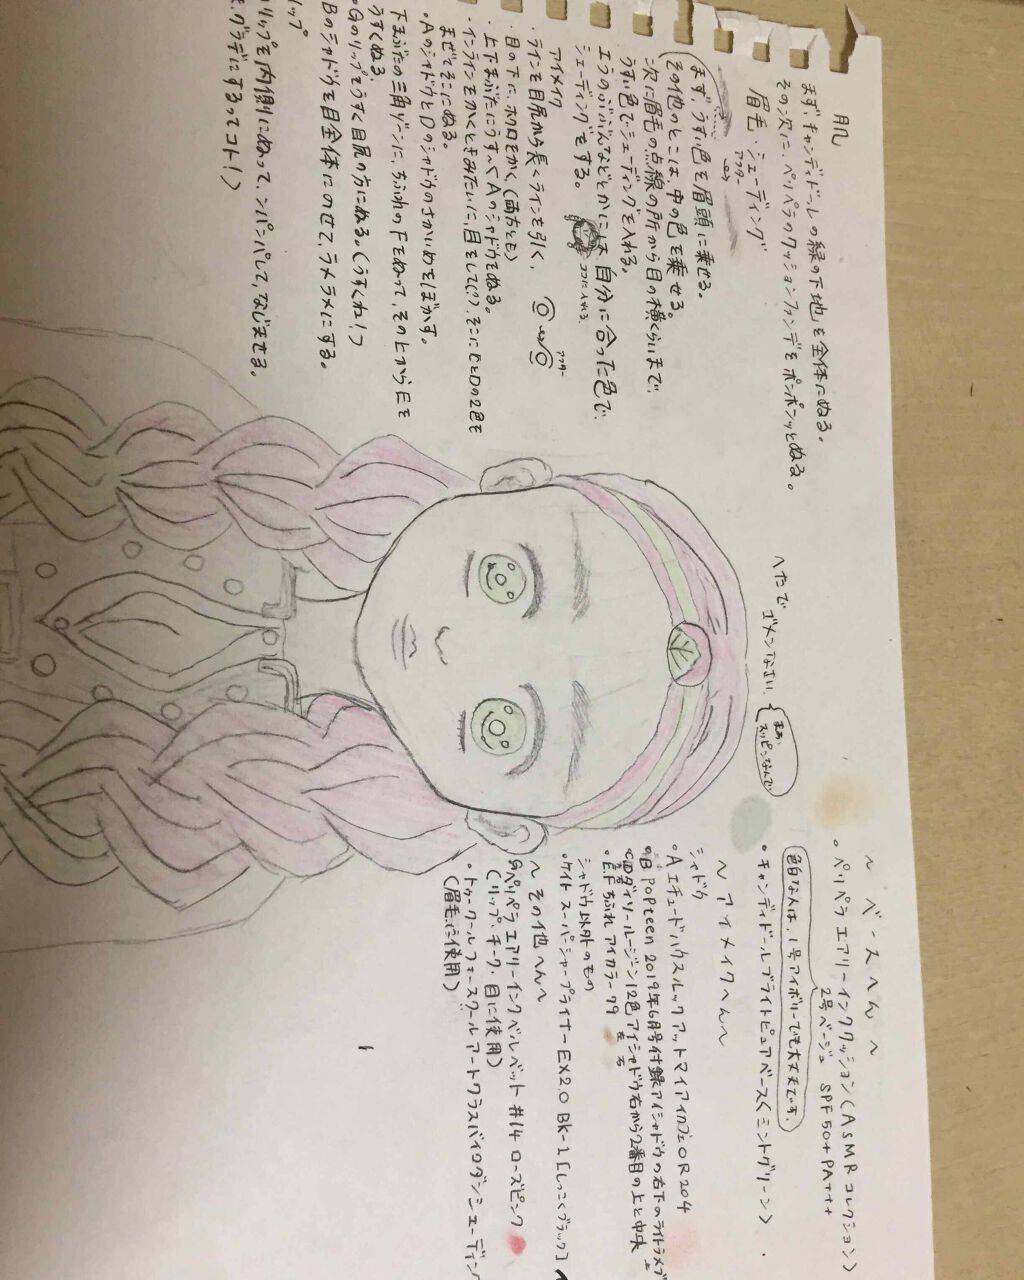 肌
まず、キャンディドールの緑の下地を全体にぬる。
その次に、ペリペラのクッションファンデをポンポンッとぬる。
眉毛・シェーディング
アフター
まず、うすい色を眉頭に乗せる。
その他のとこは、中の色を乗せる。
次に眉毛の点線の所から目の横くらいまで、
うすい色でシェーディングを入れる。
エラのぶぶんなどとかには、自分に合った色で、
シェーディングをする。
ココに入れる
アイメイク
・ラインを目尻から長くラインを引く、
アフター
目の下に、ホクロをかく、(両方とも)
・上下まぶたにうすーくAのシャドウをぬる。
・インラインをかくときみたいに、目をして(?)、そこにCとDの2色を
まぜてそこにぬる。
・AのシャドウとDのシャドウのさかいめをぼかす。
下まぶたの三角ゾーンに、ちふれのFをぬって、その上からEを
うすくぬる
・Gのリップをうすく目尻の方にぬる。(うすくね!)
Bのシャドウを目全体にのせて、ラメラメにする。
リップ
リップを内側にぬって、ンパンパして、なじませる。
グラデにするってコト!)
へたで
ゴメンなさい、
まぁ、
スッピンなんで
〜ベースへん〜
・ペリペラ エアリーインククッション(ASMRコレクション)
2号ベージュ SPF50+ PA+++
色白な人は、1号アイボリーでも大丈夫です。
・キャンディドールブライトピュアベース<ミントグリーン>
〜アイメイクへん〜
シャドウ
・A エチュードハウスルックアットマイアイカフェOR204
・B Popteen 2019年6月号付録アイシャドウの右下のライトラメブ
・CDダイソールージーン12色アイシャドウ右から2番目の上と中央
・E.F ちふれ アイカラー 79
左 右
シャドウ以外のもの
・ケイト スーパーシャープライナーEX2.0 BK-1[しっこくブラック]
〜その他へん〜
Gペリペラ エアリーインクベルベット #14 ローズピンク
(リップ、チーク、目に使用)
・トゥークールフォースクールアートクラスバイロダンシェーディン
(眉毛に使用)